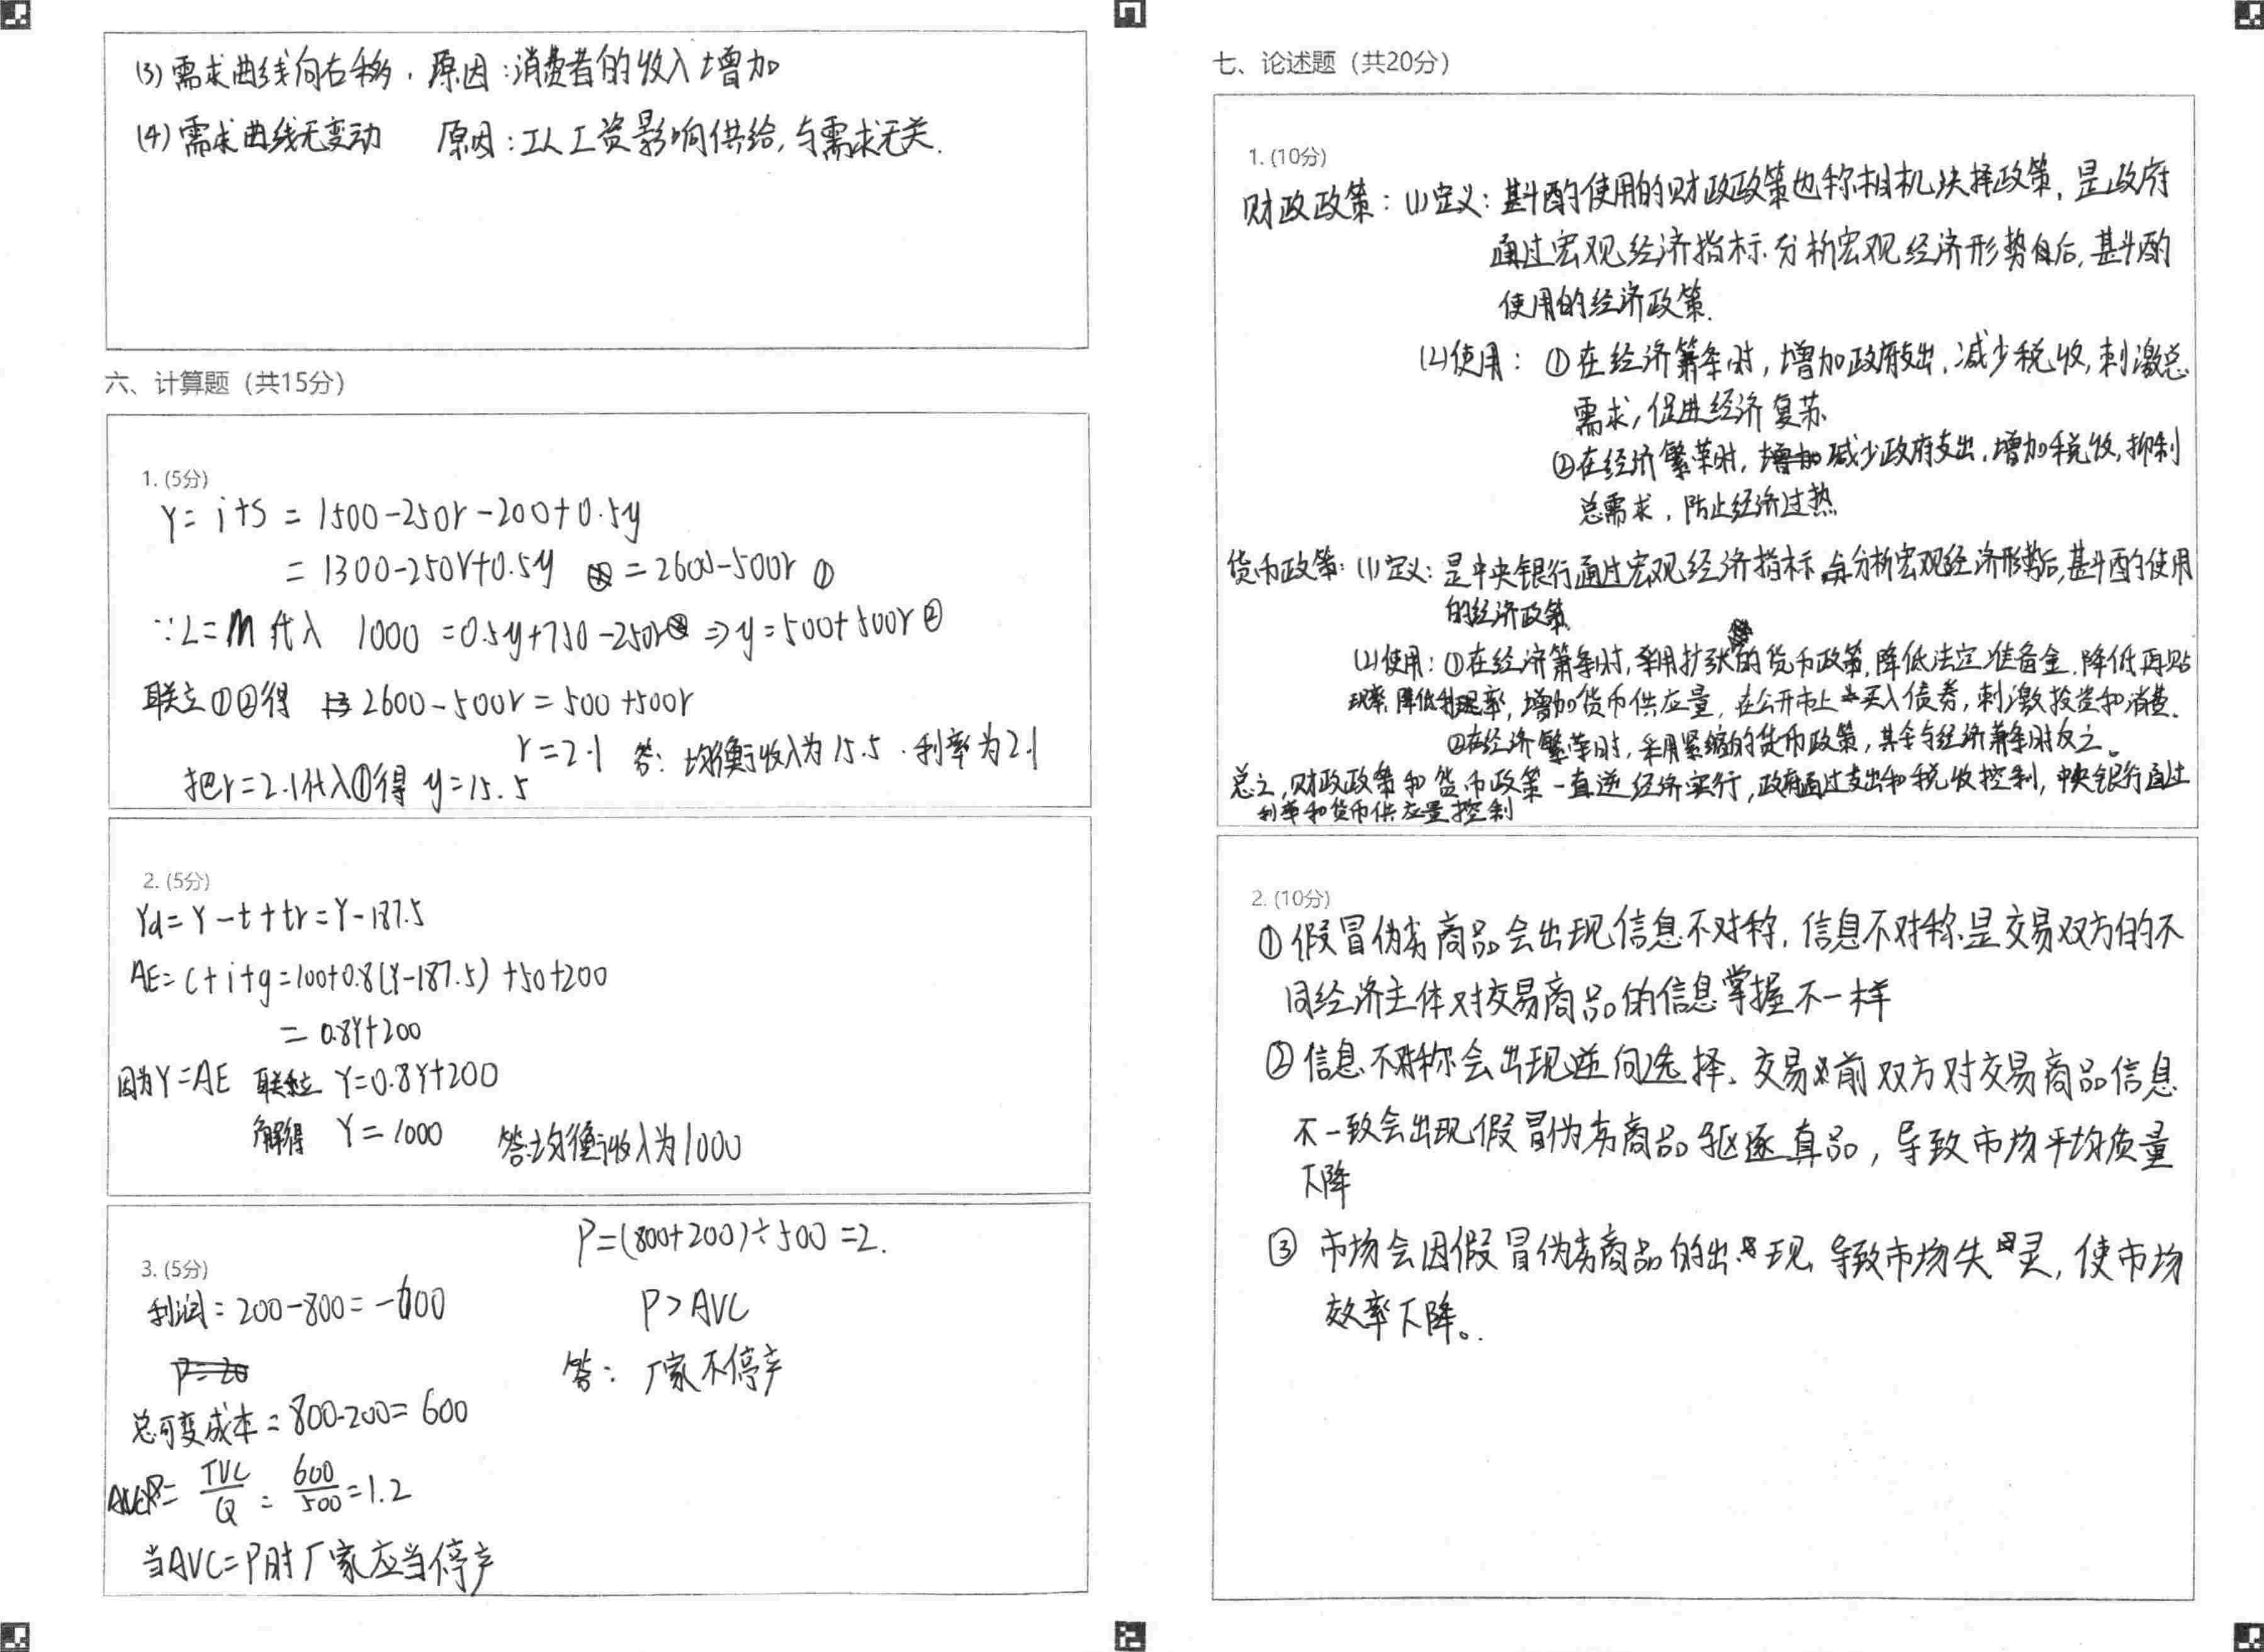 (3) 需求曲线向右移，原因：消费者的收入增加
(4) 需求曲线无变动 原因：工人工资影响供给，与需求无关.
六、计算题（共15分）
1. (5分)
Y = i+s = 1500-250r-200+0.5y
= 1300-250r+0.5y = 2600-500r ①
∵L=m 代入 1000 = 0.5y+750-250r ⇒ y=500+500r ②
联立①②得 2600-500r = 500+500r
r=2.1 答：均衡收入为15.5．利率为2.1
把r=2.1代入①得 y=15.5
2. (5分)
Yd = Y-t+tr = Y-187.5
AE = c+i+g = 100+0.8(Y-187.5)+50+200
= 0.8Y+200
因为Y=AE 联立 Y=0.8Y+200
解得 Y=1000 答：均衡收入为1000
3. (5分)
利润 = 200-800 = -600
P=20
总可变成本 = 800-200 = 600
AVC = TVC/Q = 600/500 = 1.2
当AVC=P时厂家应当停产
P=(800+200)÷500=2.
P>AVC
答：厂家不停产
七、论述题（共20分）
1. (10分)
财政政策：(1)定义：斟酌使用的财政政策也称相机抉择政策，是政府
通过宏观经济指标.分析宏观经济形势后，斟酌
使用的经济政策.
(2)使用：①在经济萧条时，增加政府支出，减少税收，刺激总
需求，促进经济复苏
②在经济繁荣时，增加减少政府支出，增加税收，抑制
总需求，防止经济过热
货币政策：(1)定义：是中央银行通过宏观经济指标，分析宏观经济形势后，斟酌使用
的经济政策
(2)使用：①在经济萧条时，采用扩张的货币政策，降低法定准备金，降低再贴
现率，降低利率，增加货币供应量，在公开市上买入债券，刺激投资和消费.
②在经济繁荣时，采用紧缩的货币政策，其余与经济萧条时反之。
总之，财政政策和货币政策一直逆经济实行，政府通过支出和税收控制，中央银行通过
利率和货币供应量控制
2. (10分)
①假冒伪劣商品会出现信息不对称，信息不对称是交易双方的不
同经济主体对交易商品的信息掌握不一样
②信息不对称会出现逆向选择、交易前双方对交易商品信息
不一致会出现假冒伪劣商品驱逐真品，导致市场平均质量
下降
③市场会因假冒伪劣商品的出现，导致市场失灵，使市场
效率下降。